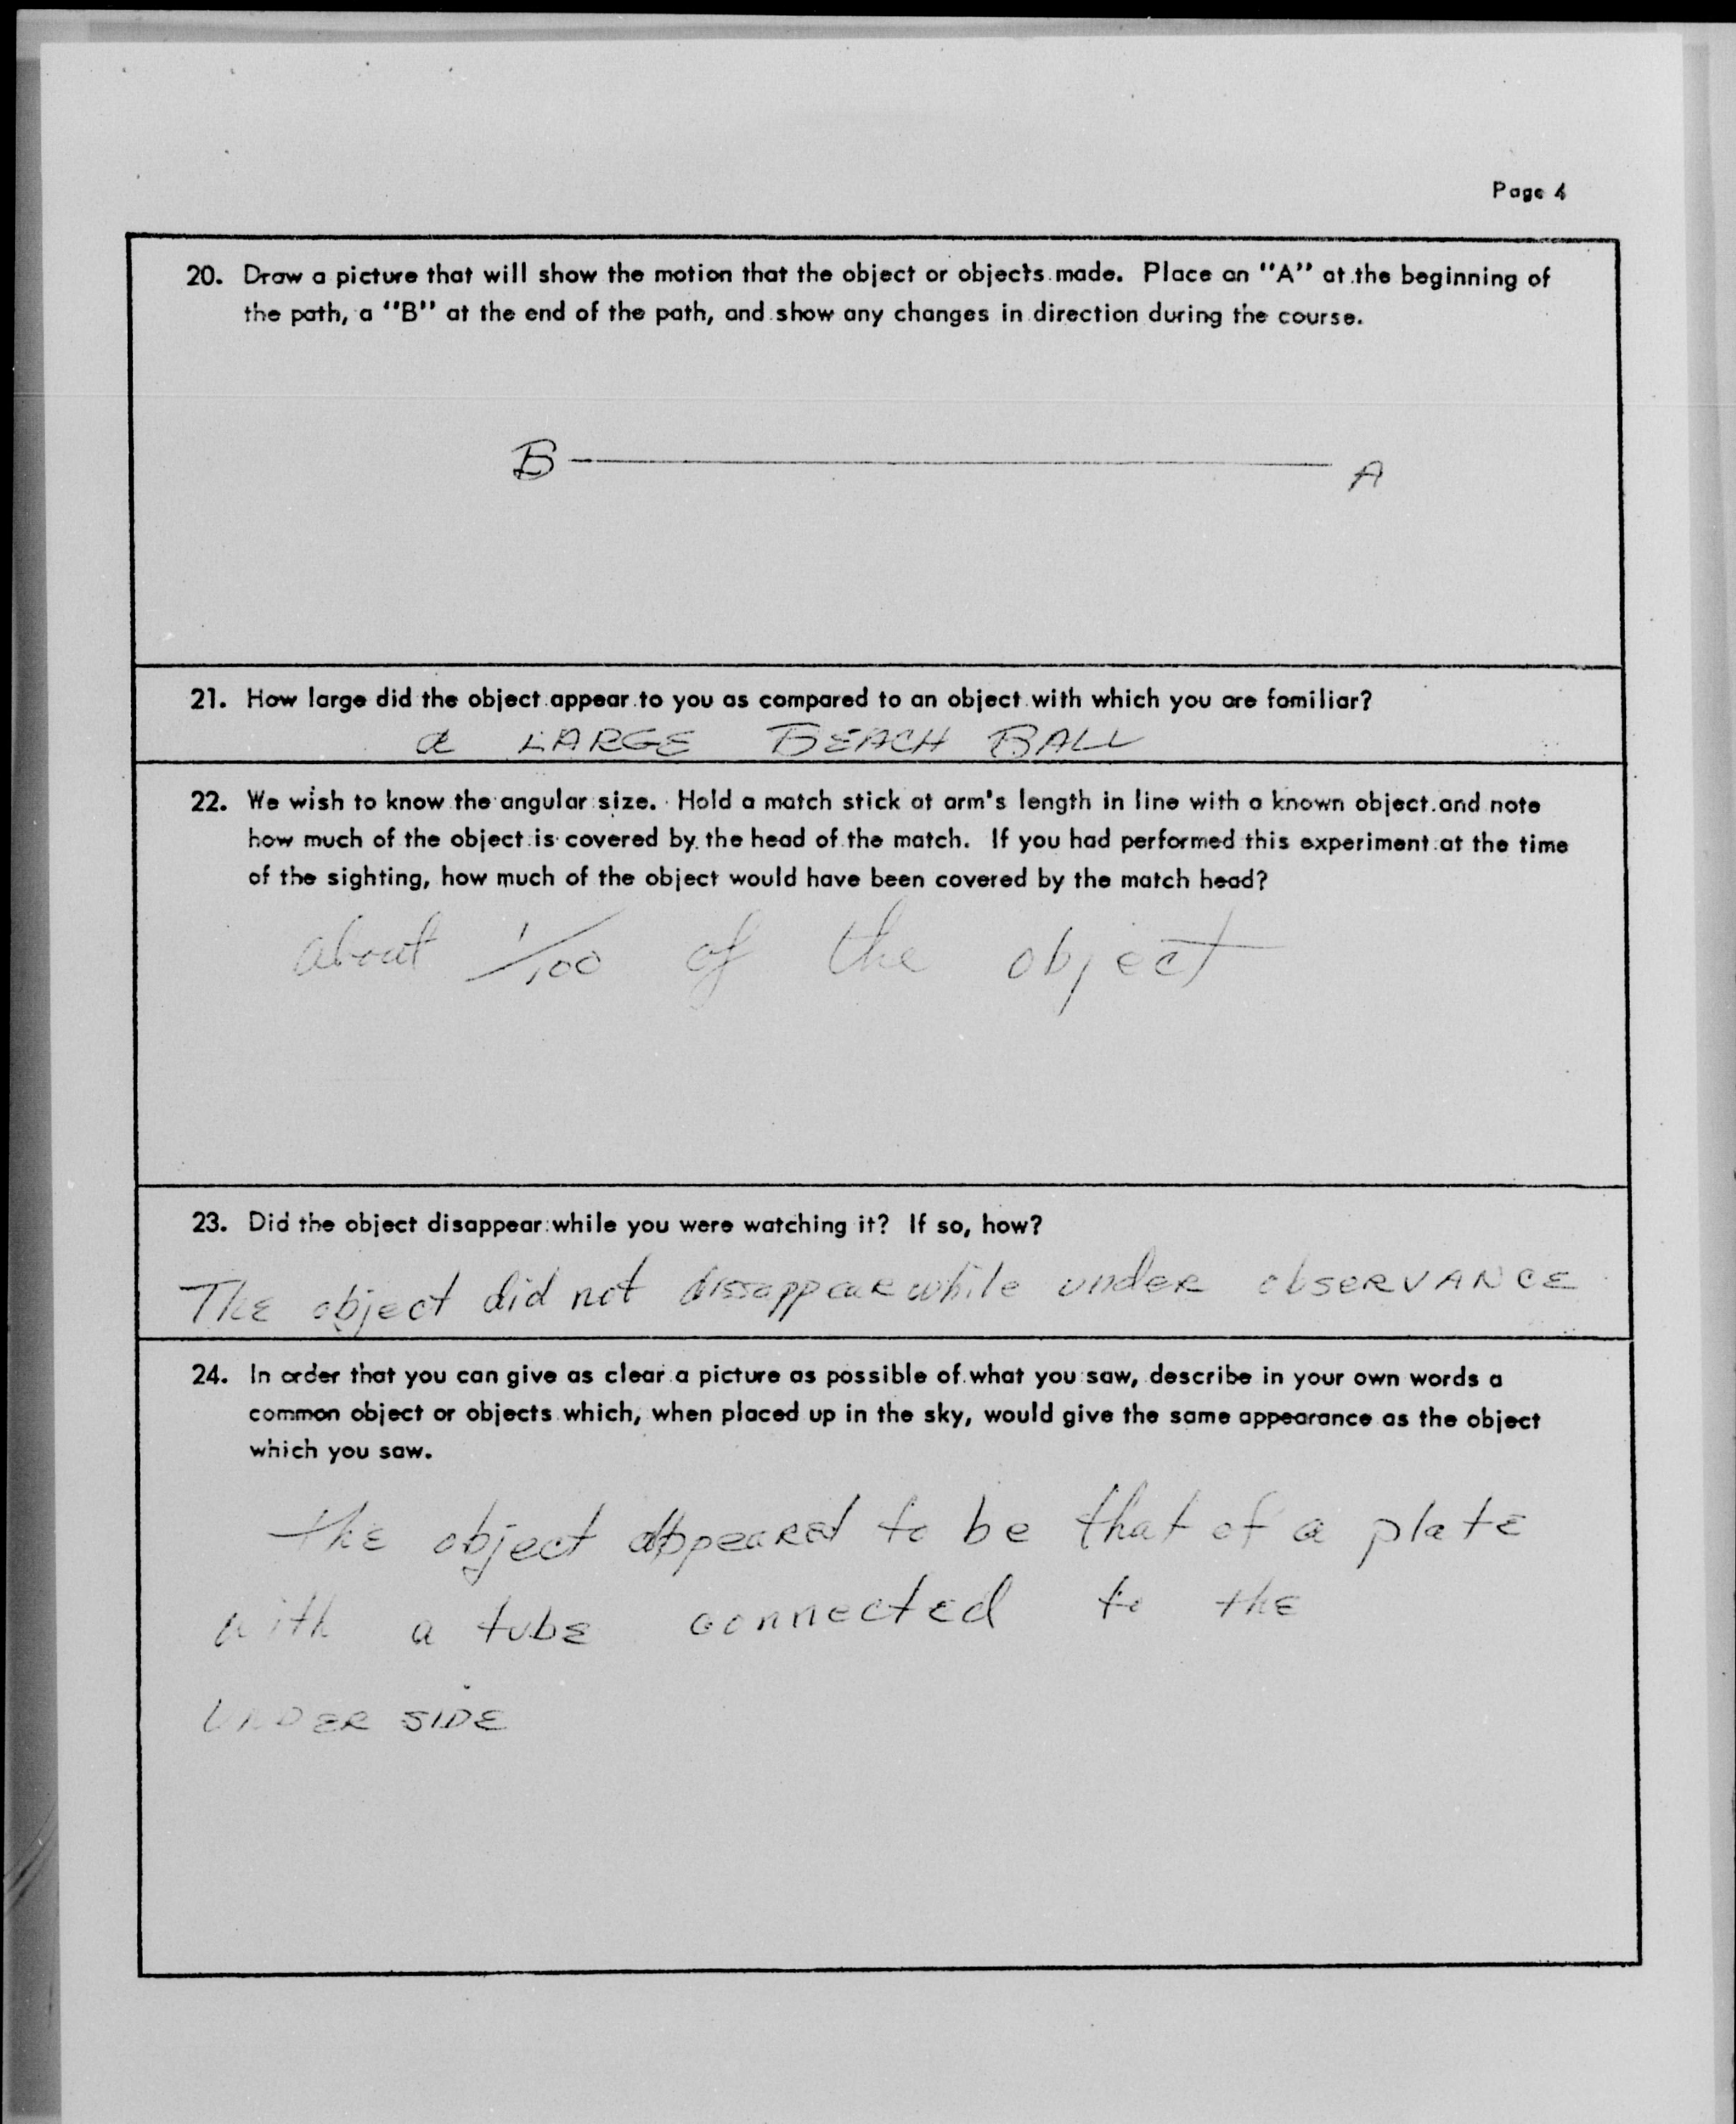 Page 4
20. Draw a picture that will show the motion that the object or objects made. Place an "A" at the beginning of
the path, a "B" at the end of the path, and show any changes in direction during the course.
B A
21. How large did the object appear to you as compared to an object with which you are familiar?
a LARGE BEACH BALL
22. We wish to know the angular size. Hold a match stick at arm's length in line with a known object and note
how much of the object is covered by the head of the match. If you had performed this experiment at the time
of the sighting, how much of the object would have been covered by the match head?
about 1/100 of the object
23. Did the object disappear while you were watching it? If so, how?
The object did not dissappear while under observance
24. In order that you can give as clear a picture as possible of what you saw, describe in your own words a
common object or objects which, when placed up in the sky, would give the same appearance as the object
which you saw.
the object appeared to be that of a plate
with a tube connected to the
UNDER SIDE